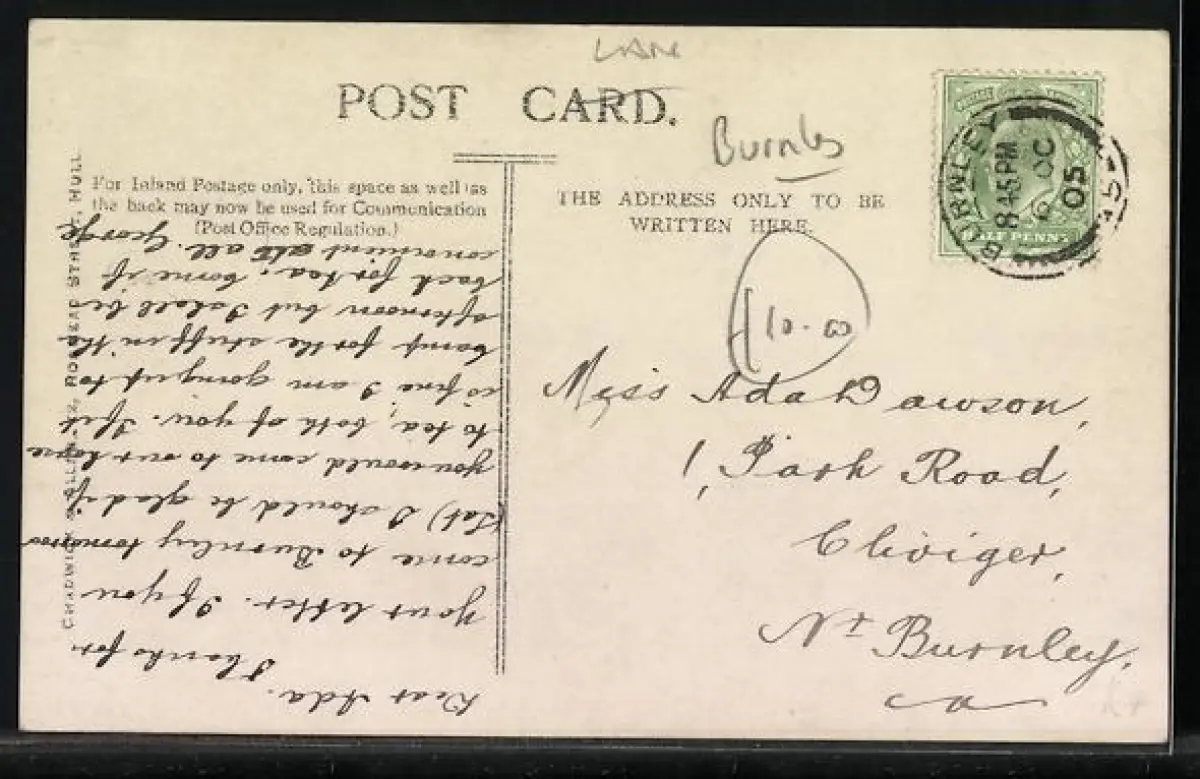 LAN
POST CARD.
Burnley
For Inland Postage only, this space as well as
the back may now be used for Communication
(Post Office Regulation.)
THE ADDRESS ONLY TO BE
WRITTEN HERE.
BURNLEY
8 45 PM
OC
05
HALF PENNY
10-00
Miss Ada Dawson,
1, Park Road,
Cliviger,
Nr Burnley.
Dear Ada.
Thanks for
your letter. If you
come to Burnley tomorrow
(Sat) I should be glad if
you would come to our
to tea, both of you. If it
is fine I am going up to
for the stuff in the
afternoon but I shall be
back for tea. Come if
convenient at all. George
CHADWICK STREET, HULL